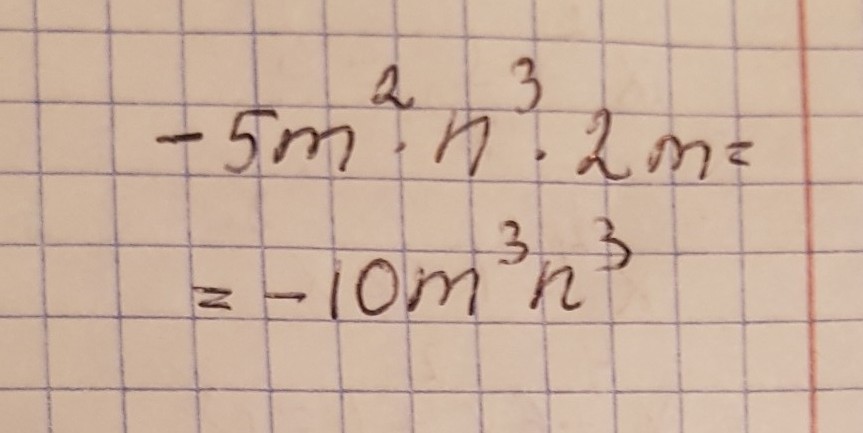 -5m²·n³·2m=
=-10m³n³